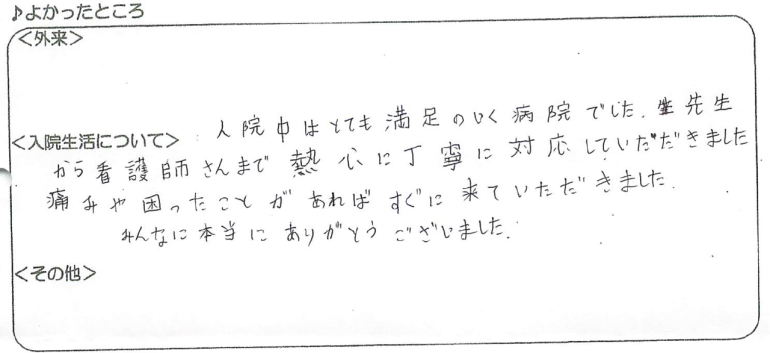 ♪よかったところ
<外来>
入院中はとても満足のいく病院でした。先生
<入院生活について>
から看護師さんまで熱心に丁寧に対応していただきました
痛みや困ったことがあればすぐに来ていただきました。
みんなに本当にありがとうございました。
<その他>